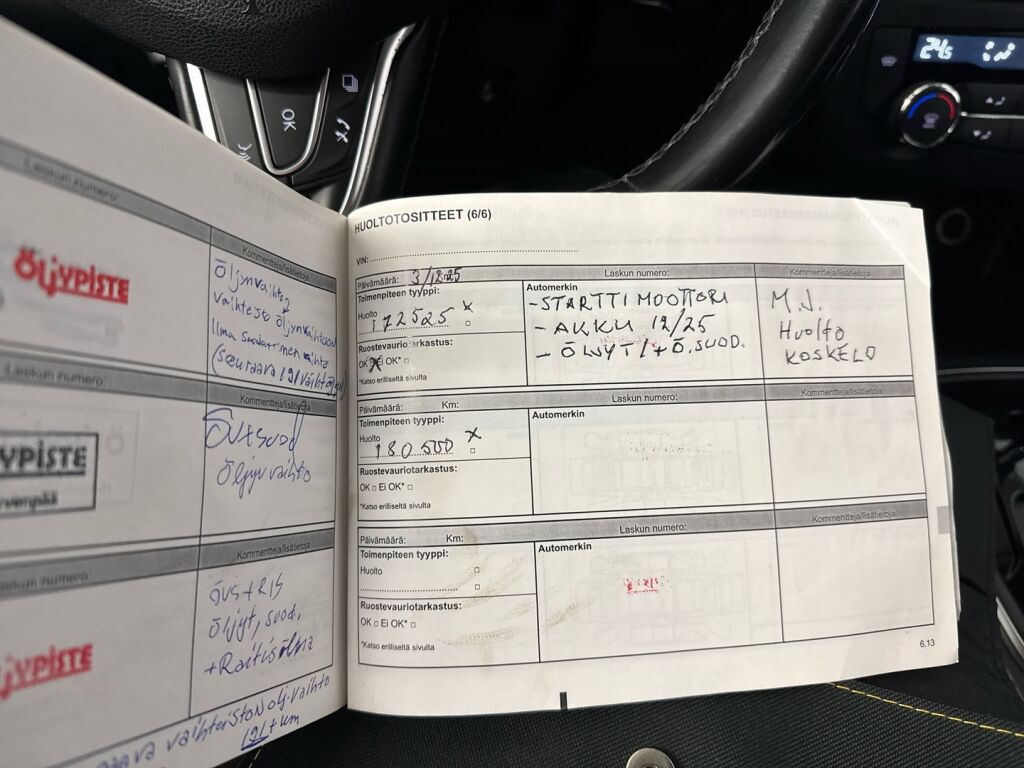 OK
24.5
Laskun numero:
Kommentteja/lisätietoja
ÖLJYPISTE
Öljynvaihto
vaihteisto öljynvaihtoon
Ilma suodattimen vaihto
(seuraava 191 vaihtöljyn)
Laskun numero:
Kommentteja/lisätietoja
YPISTE
rvenpää
Öljyvaihto
Laskun numero:
Kommentteja/lisätietoja
JYPISTE
ÖVS+RIS
Öljyt, suod.
+Raitisilma
vaihteiston olj-vaihto
191 t km
HUOLTOTOSITTEET (6/6)
VIN:
Päivämäärä: 3/12.25
Laskun numero:
Kommentteja/lisätietoja
Toimenpiteen tyyppi:
Huolto
172525 x
Ruostevauriotarkastus:
OK x Ei OK*
*Katso erilliseltä sivulta
Automerkin
- STARTTI MOOTTORI
- AKKU 12/25
- ÖLJYT/+Ö.SUOD.
M.J.
Huolto
KOSKELO
Päivämäärä: Km:
Laskun numero:
Kommentteja/lisätietoja
Toimenpiteen tyyppi:
Huolto
180500 x
Ruostevauriotarkastus:
OK Ei OK*
*Katso erilliseltä sivulta
Automerkin
Päivämäärä: Km:
Laskun numero:
Kommentteja/lisätietoja
Toimenpiteen tyyppi:
Huolto
Ruostevauriotarkastus:
OK Ei OK*
*Katso erilliseltä sivulta
Automerkin
6.13